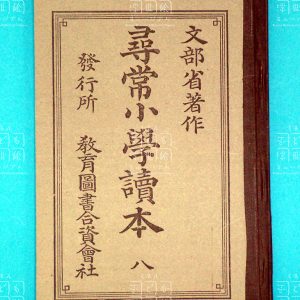 文部省著作
尋常小學讀本 八
發行所 敎育圖書合資會社